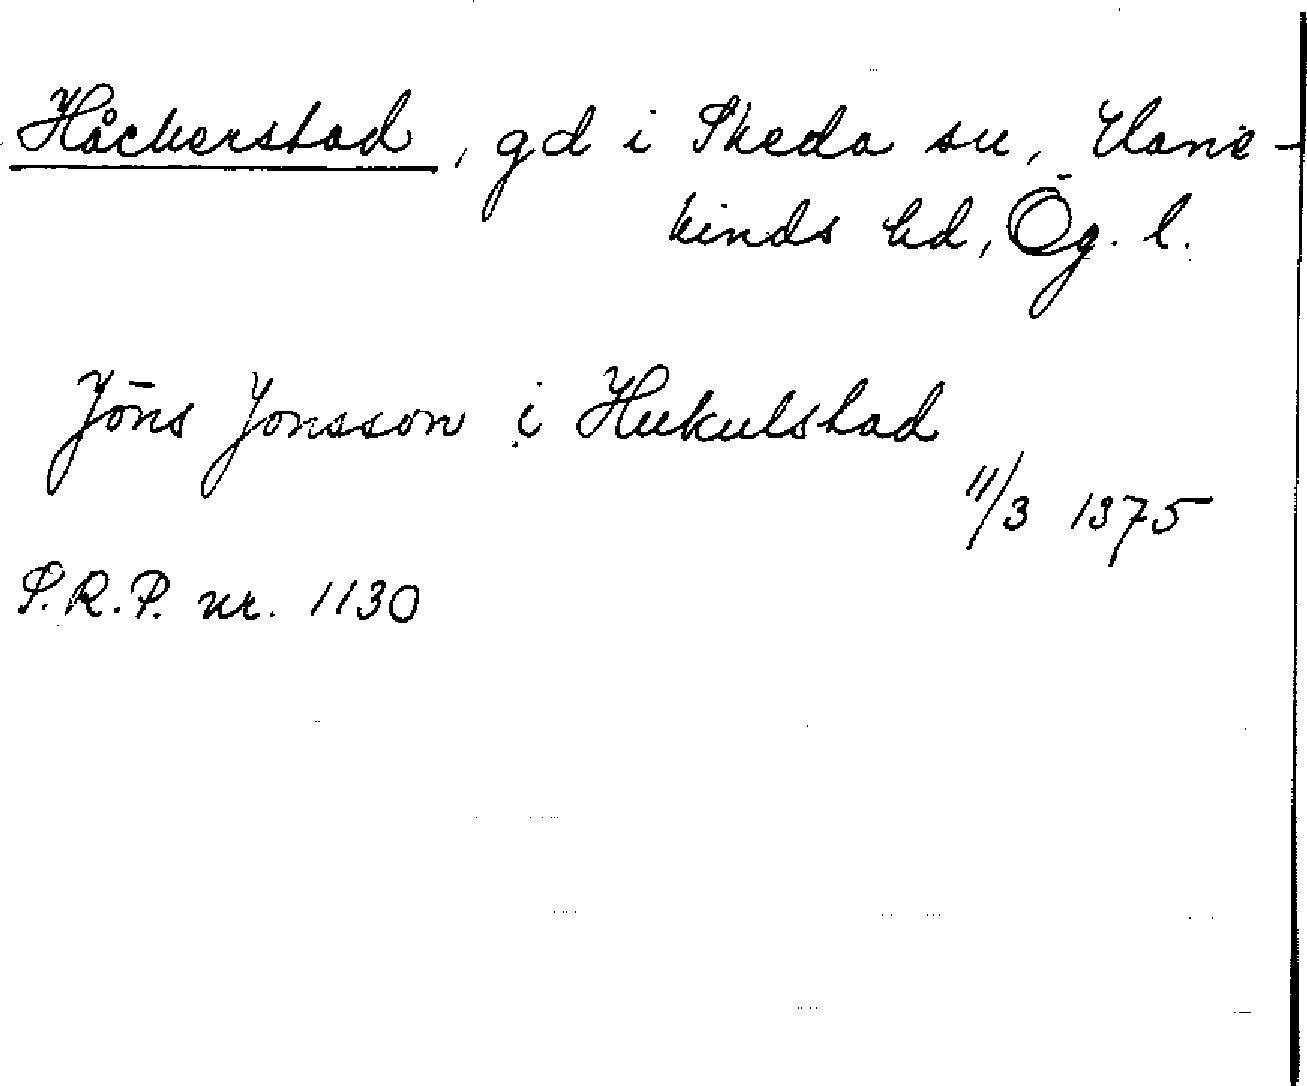 Håckerstad, gd i Skeda sn, Hane-
kinds hd, Ög. l.
Jöns Jonsson i Hukulstad
11/3 1375
S.R.P. nr. 1130